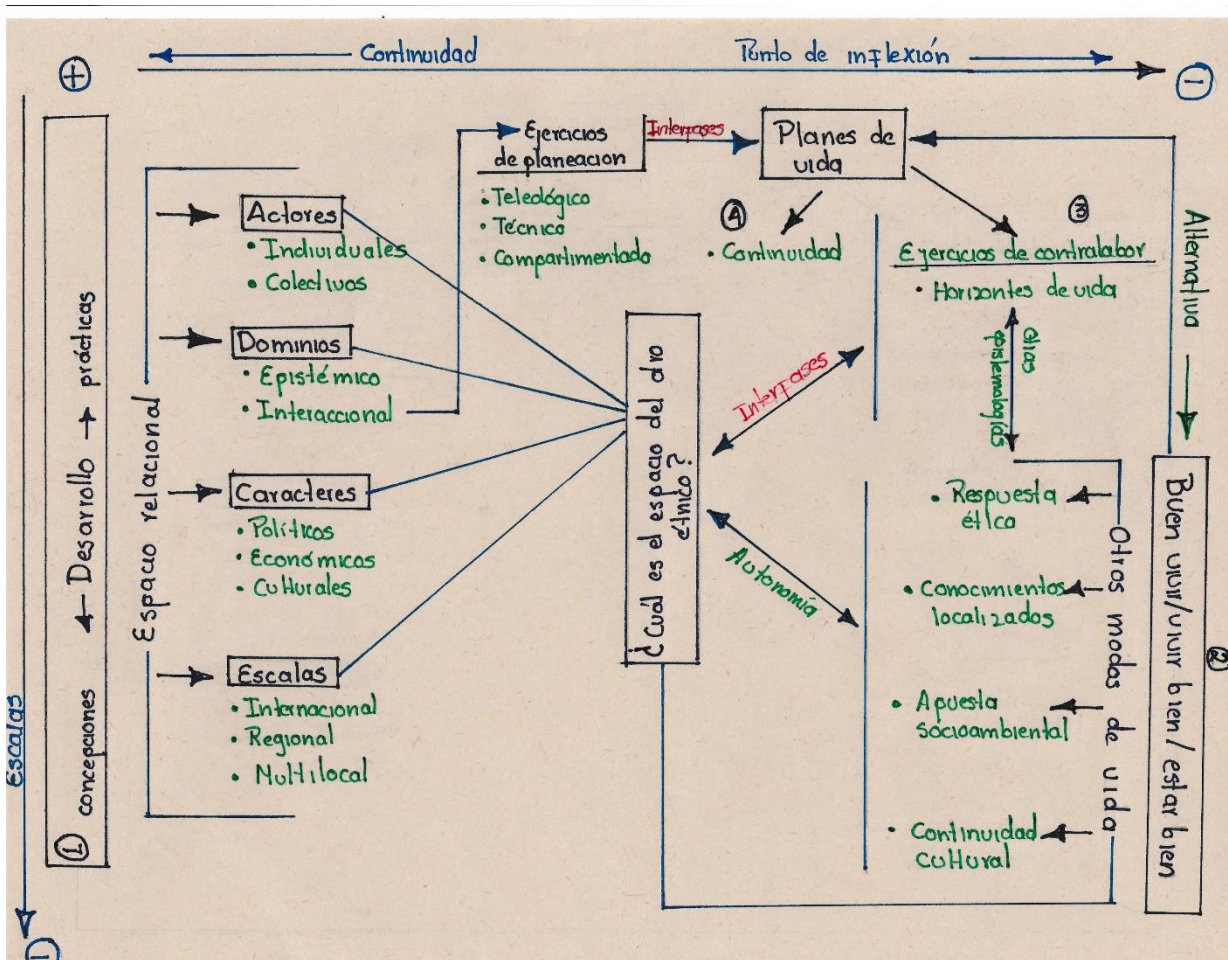 Continuidad
Punto de inflexión
+
−
Escalas
−
① concepciones ← Desarrollo → prácticas
Espacio relacional
Actores
• Individuales
• Colectivos
Dominios
• Epistémico
• Interaccional
Caracteres
• Políticos
• Económicos
• Culturales
Escalas
• Internacional
• Regional
• Multilocal
Ejercicios
de planeacion
• Teleológico
• Técnico
• Compartimentado
Interfases
Planes de
vida
④
• Continuidad
③
Ejercicios de contralabor
• Horizontes de vida
Otras
epistemologías
¿Cuál es el espacio del otro
étnico?
Interfases
Autonomía
• Respuesta
ética
• Conocimientos
localizados
• Apuesta
socioambiental
• Continuidad
cultural
Otros modos de vida
Alternativa
Buen vivir/vivir bien/estar bien
②